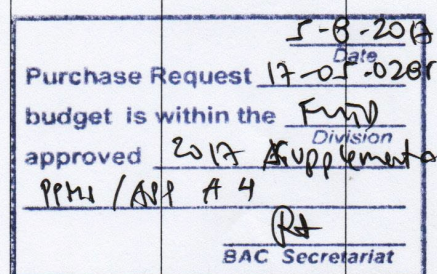 5-8-2017
Date
Purchase Request 17-05-0201
budget is within the FMD
Division
approved 2017 Supplemental
PPMP / APP # 4
BAC Secretariat